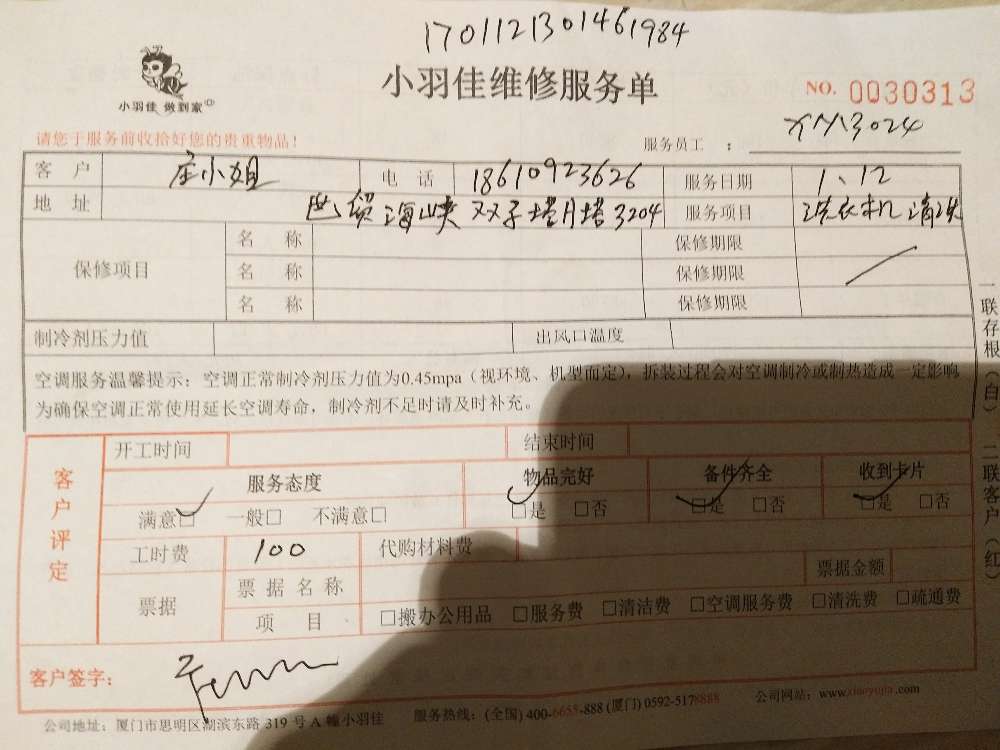 1701121301461984
小羽佳 做到家
小羽佳维修服务单
NO. 0030313
请您于服务前收拾好您的贵重物品!
服务员工 : XM13024
客户 庄小姐 电话 18610923626 服务日期 1.12
地址 世贸海峡双子塔月塔3204 服务项目 洗衣机清洗
保修项目
名称 保修期限
名称 保修期限
名称 保修期限
制冷剂压力值 出风口温度
空调服务温馨提示：空调正常制冷剂压力值为0.45mpa（视环境、机型而定），拆装过程会对空调制冷或制热造成一定影响
为确保空调正常使用延长空调寿命，制冷剂不足时请及时补充。
客户评定
开工时间 结束时间
服务态度 物品完好 备件齐全 收到卡片
满意□ 一般□ 不满意□ □是 □否 □是 □否 □是 □否
工时费 100 代购材料费
票据 票据名称 票据金额
项目 □搬办公用品 □服务费 □清洁费 □空调服务费 □清洗费 □疏通费
客户签字：
公司地址：厦门市思明区湖滨东路319号A幢小羽佳 服务热线：(全国) 400-6655-888 (厦门) 0592-5178888 公司网站：www.xiaoyujia.com
一联存根（白）二联客户（红）